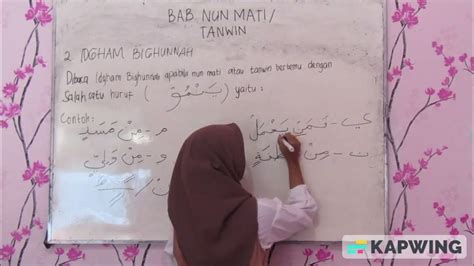 BAB. NUN MATI /
TANWIN
2. IDGHAM BIGHUNNAH
Dibaca Idgham Bighunnah apabila nun mati atau tanwin bertemu dengan
Salah satu huruf (يَنْمُوْ) yaitu :
Contoh:
ي - فَمَنْ يَعْمَلْ
م - مِنْ مَسَدٍ
ن - مِنْ
و - مِنْ وَلِيٍّ
KAPWING